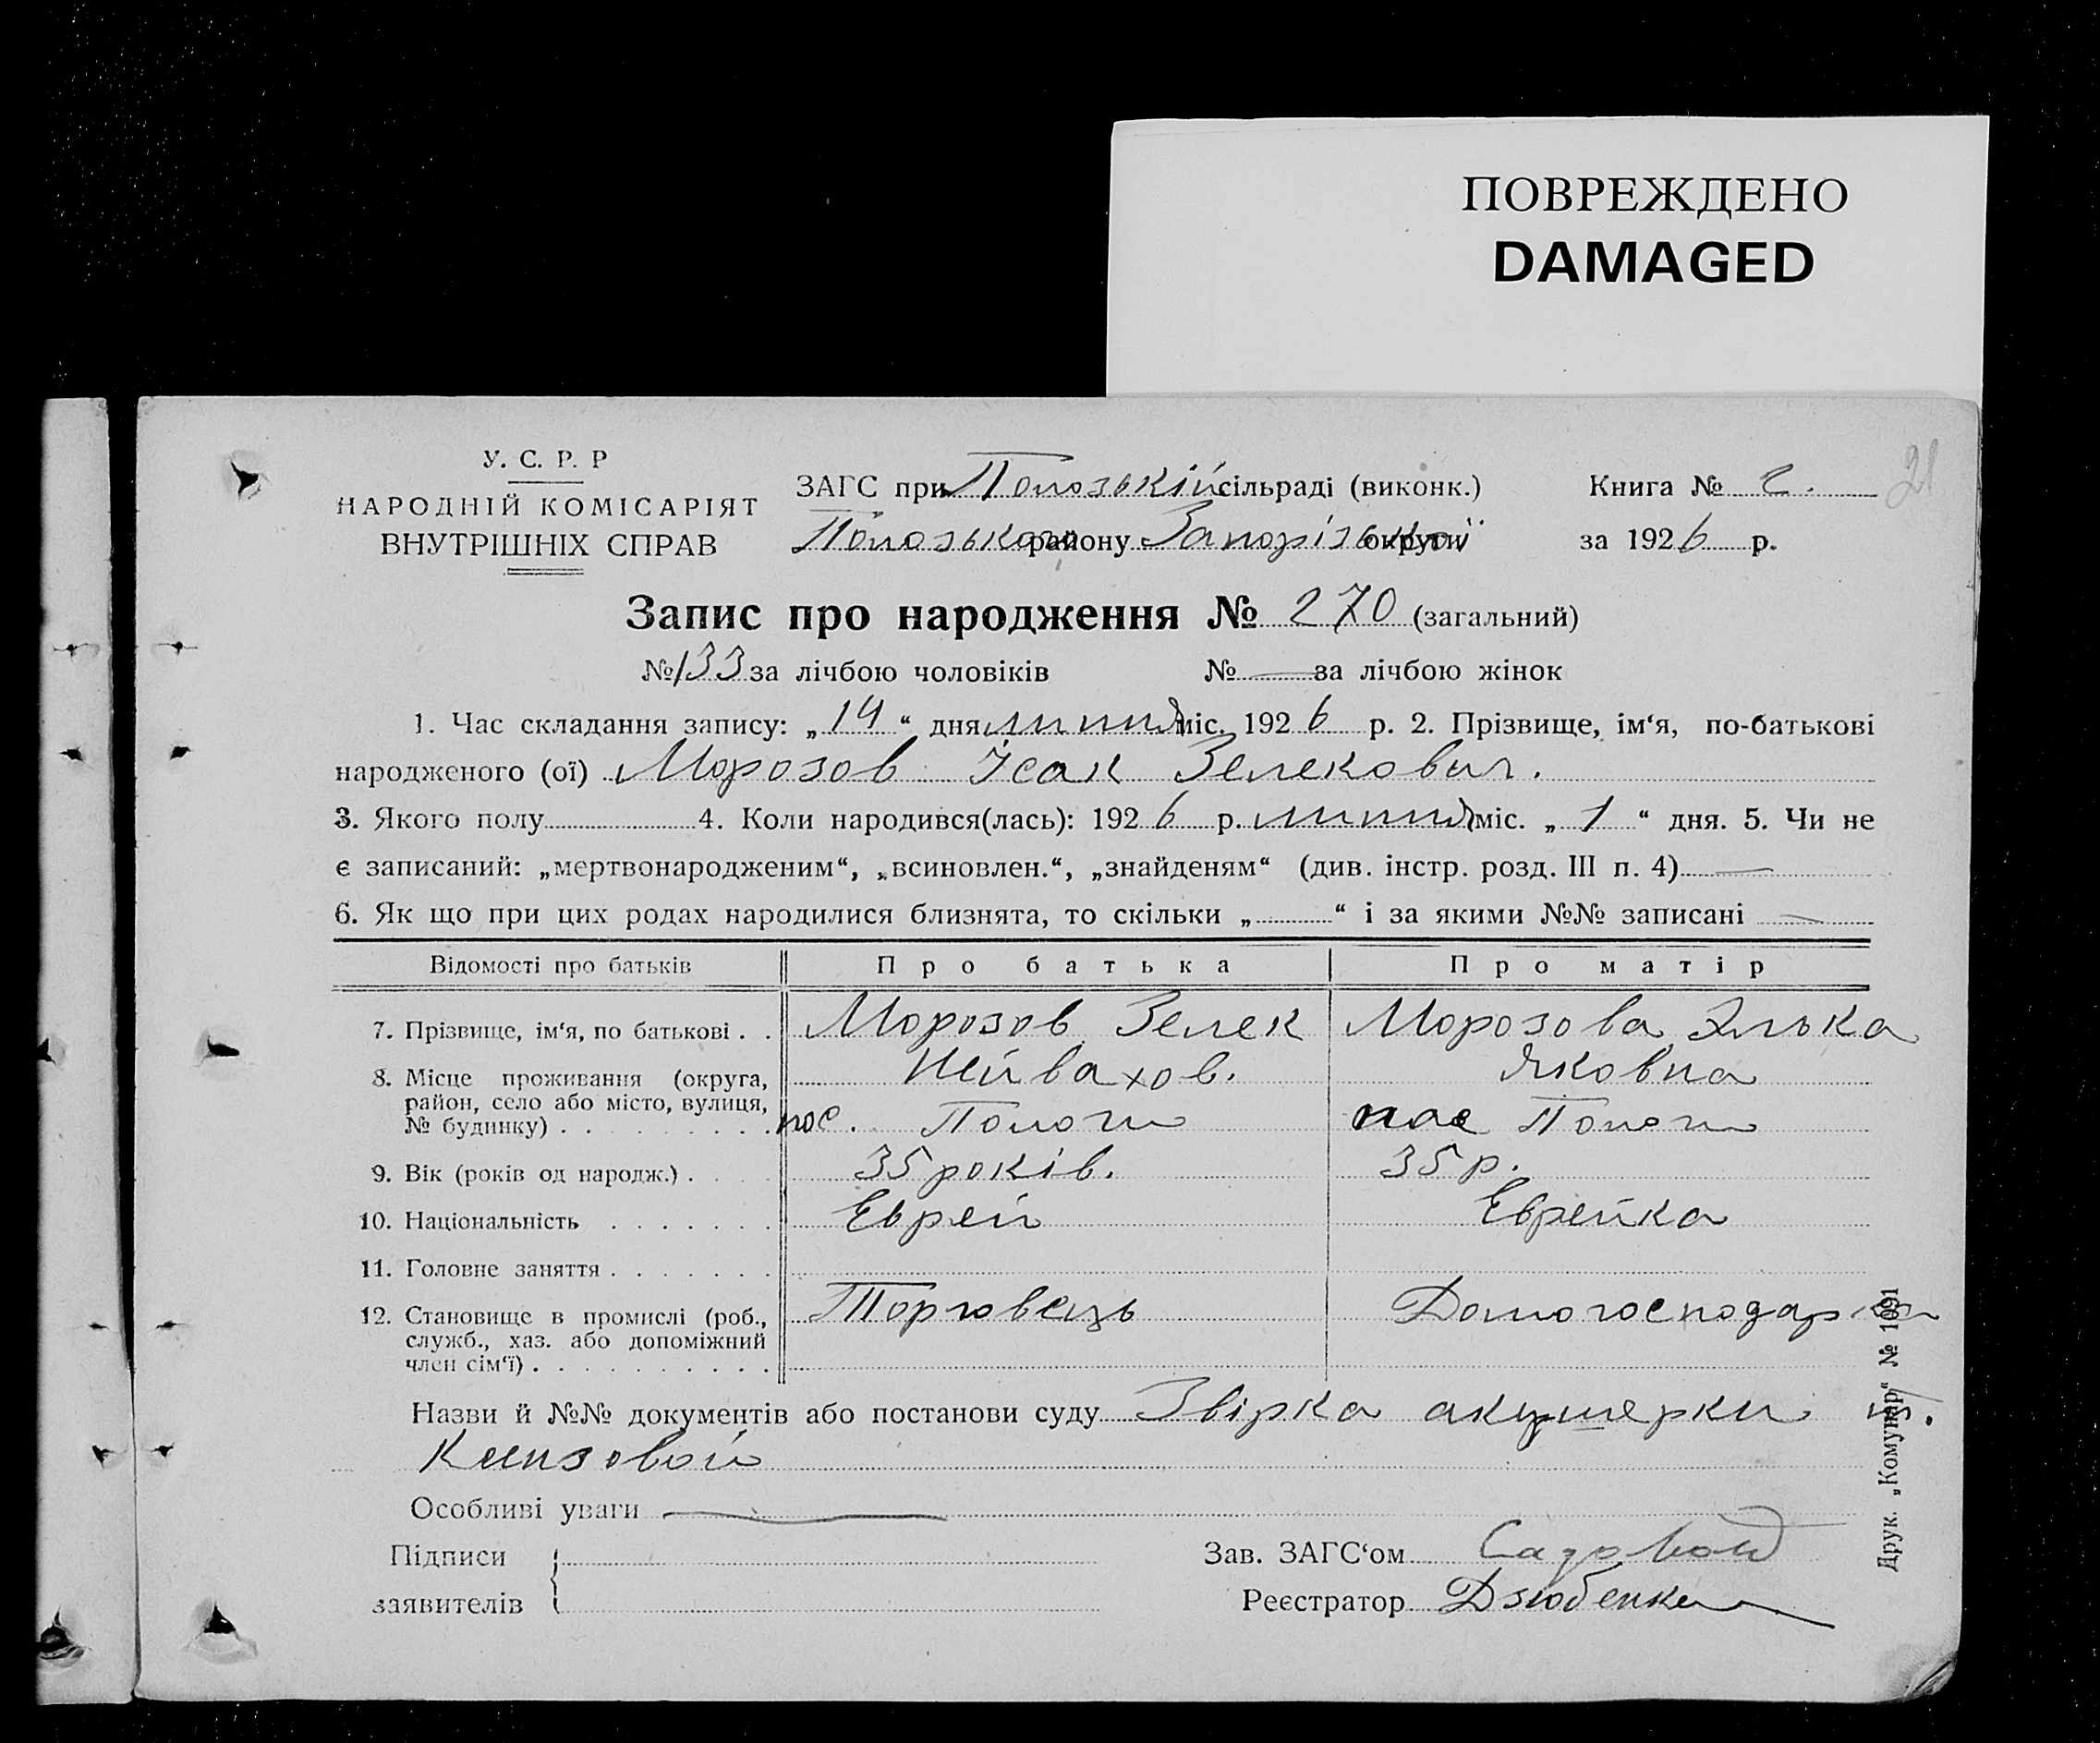 ПОВРЕЖДЕНО
DAMAGED
21
У. С. Р. Р
НАРОДНІЙ КОМІСАРІЯТ
ВНУТРІШНІХ СПРАВ
ЗАГС при Пологській сільраді (виконк.)
Книга №
Пологського району Запорізької округи
за 1926 р.
Запис про народження № 270 (загальний)
№ 133 за лічбою чоловіків № — за лічбою жінок
1. Час складання запису: „14“ дня липня міс. 1926 р. 2. Прізвище, ім‘я, по-батькові
народженого (ої) Морозов Ісак Зелекович.
3. Якого полу 4. Коли народився(лась): 1926 р. липня міс. „1“ дня. 5. Чи не
є записаний: „мертвонародженим“, „всиновлен.“, „знайденям“ (див. інстр. розд. III п. 4) —
6. Як що при цих родах народилися близнята, то скільки „ “ і за якими №№ записані —
Відомості про батьків Про батька Про матір
7. Прізвище, ім‘я, по батькові . . Морозов Зелек Морозова Элька
Шейвахов. Яковна
8. Місце проживання (округа,
район, село або місто, вулиця,
№ будинку) . . . . . . . . . пос. Пологи пос Пологи
9. Вік (років од народж.) . . . . 35 років. 35 р.
10. Національність . . . . . . . Еврей Еврейка
11. Головне заняття . . . . . . .
12. Становище в промислі (роб.,
служб., хаз. або допоміжний
член сім‘ї) . . . . . . . . . . Торговець Домогосподарка
Назви й №№ документів або постанови суду Звірка акушерки
Особливі уваги —
Підписи
заявителів
Зав. ЗАГС‘ом Садовой
Реєстратор Дзюбенко
Друк. „Комунар“ № 1091